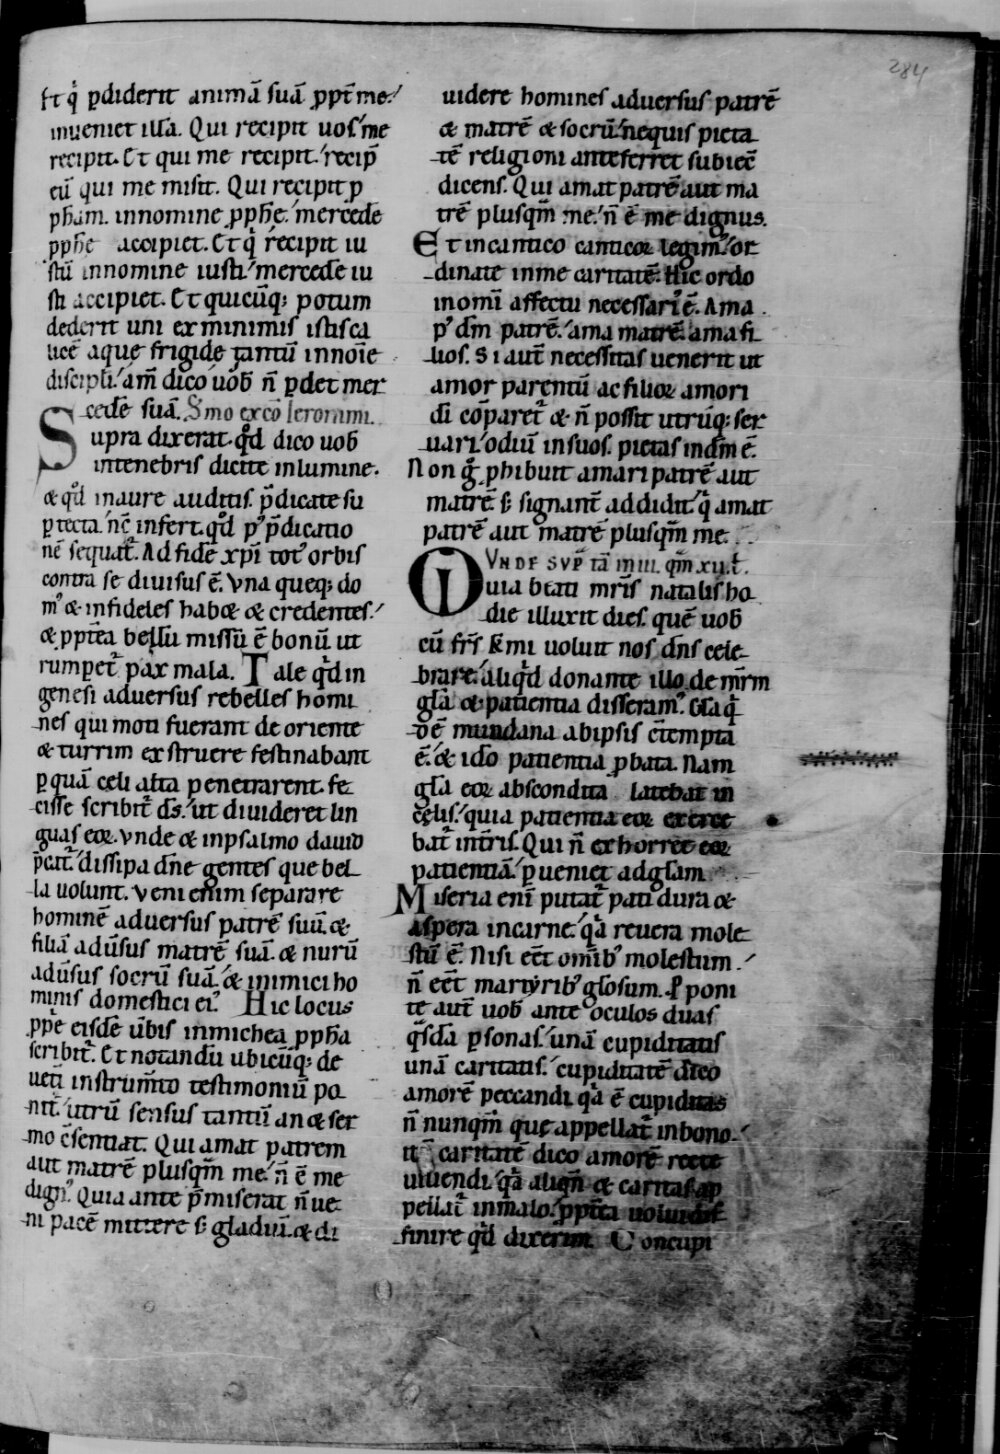 284
Et q̇ p̱diderit animā suā ꝓpt̄ me᷎
inueniet illa. Qui recipit uos᷎ me
recipit. Et qui me recipit᷎ recip̄
eū qui me misit. Qui recipit ꝓ
ph̄am. innomine ꝓph̄e᷎ mercedē
ꝓph̄e accipiet. Et q̇ recipit iu
stū innomine iusti᷎ mercedē iu
sti accipiet. Et quicūq; potum
dederit uni ex minimis istis ca
licē aque frigide tantū innoīe
discipli᷎ am̄ dico uob̄ n̄ p̱det mer
cedē suā. Smo ex cō Ieronimi.
Supra dixerat. qd̄ dico uob̄
intenebris dicite inlumine.
& qd̄ inaure auditis. p̄dicate su
p̱ tecta. nc̄ infert. qd̄ p᷒ p̄dicatio
nē sequat᷑. Ad fidē xp̄i tot᷒ orbis
contra se diuisus ē. Vna queq; do
m᷒ & infideles hab& & credentes᷎
& ꝓpt̄ea bellū missū ē bonū ut
rumperet᷑ pax mala. Tale qd̄ in
genesi aduersus rebelles homi
nes qui moti fuerant de oriente
& turrim exstruere festinabant
p̱ quā celi alta penetrarent. fe
cisse scribit᷑ ds᷎̄ ut diuideret lin
guas eoꝝ. Vnde & inpsalmo dauid
p̄cat᷎᷑ dissipa dn̄e gentes que bel
la uolunt. Veni enim separare
hominē aduersus patrē suū. &
filiā adūsus matrē suā. & nurū
adūsus socrū suā. & inimici ho
minis domestici ei᷒. Hic locus
ꝓpe eisdē ūbis inmichea ꝓph̄a
scribit᷑. Et notandū ubicūq; de
uet̄i instrum̄to testimoniū po
nit᷎ utrū sensus tantū an & ser
mo c̄sentiat. Qui amat patrem
aut matrē plusqm̄ me᷎ n̄ ē me
dign᷒. Quia ante p̄miserat n̄ ue
ni pacē mittere s; gladiū. & di
uidere homines aduersus patrē
& matrē & socrū᷎ nequis pieta
tē religioni anteferret subiec̄
dicens. Qui amat patrē aut ma
trē plusqm̄ me᷎ n̄ ē me dignus.
Et incantico canticoꝝ legim᷎᷒ or
dinate inme caritatē. Hic ordo
inomī affectu necessari᷒ ē. Ama
p᷒ dm̄ patrē᷎ ama matrē. ama fi
lios. Si aut̄ necessitas uenerit ut
amor parentū ac filioꝝ amori
dī cōparet᷑ & n̄ possit utrūq; ser
uari᷎ odiū insuos. pietas indm̄ ē.
Non g̊ ꝓhibuit amari patrē aut
matrē s; signant̄ addidit᷎ q̇ amat
patrē aut matrē plusqm̄ me.
VNDE SVP tā in iiii. qm̄ xii.
Quia beati mr̄is natalis ho
die illuxit dies. quē uob̄
cū fr̄s k̄mi uoluit nos dn̄s cele
brare᷎ aliqd̄ donante illo. de mr̄m
gl̄a & patientia disseram᷒. Gl̄a q̇
dē mundana abipsis c̄tempta
ē. & ido patientia ꝓbata. Nam
gl̄a eoꝝ abscondita latebat in
celis᷎ quia patientia eoꝝ exerce
bat᷑ int̄ris. Qui n̄ exhorret eoꝝ
patientiā᷎ p̱ueniet adgl̄am.
Miseria enī putat᷑ pati dura &
aspera incarne᷎ qa reuera mole
stū ē. Nisi eēt om̄ib᷒ molestum᷎
n̄ eēt martyrib᷒ gl̄osum. P̱poni
te aut̄ uob̄ ante oculos duas
qs̄da p̱sonas᷎ unā cupiditatis
unā caritatis᷎ cupiditatē dico
amorē peccandi qa ē cupiditas
n̄ nunqm̄ que appellat᷑ inbono᷎
it̄ caritatē dico amorē recte
uiuendi᷎ qa aliqn̄ & caritas ap
pellat᷑ inmalo᷎ ꝓpt̄ea uolui dif
finire qd̄ dixerim. Concupi